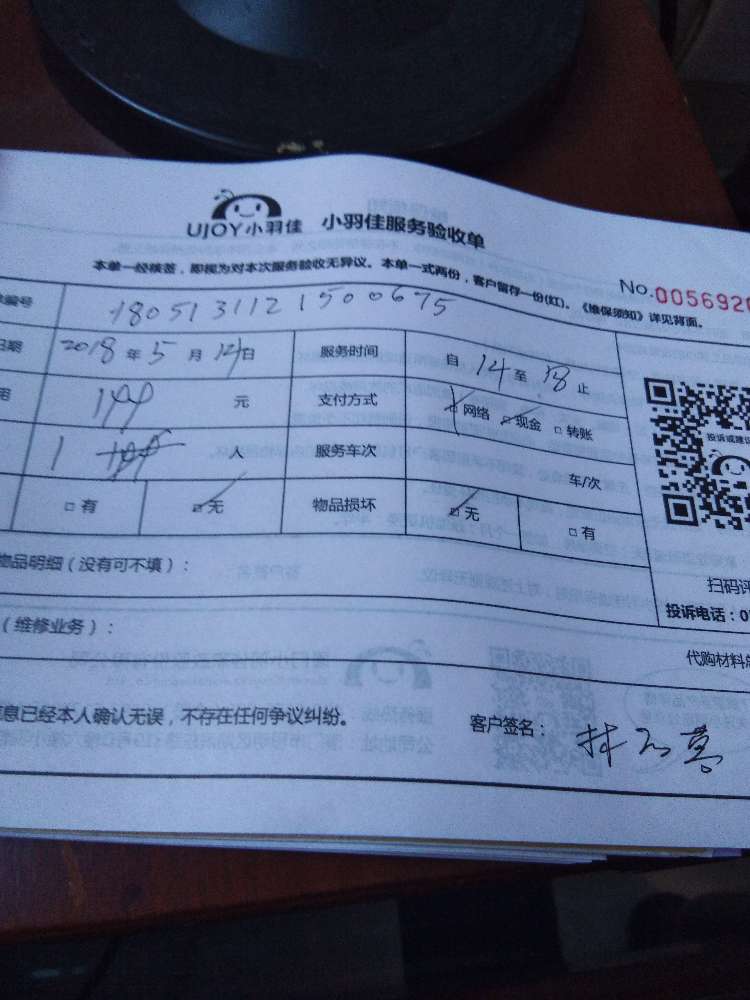 UJOY小羽佳 小羽佳服务验收单
本单一经核签，即视为对本次服务验收无异议。本单一式两份，客户留存一份(红)。《维保须知》详见背面。
No.0056920
编号 1805131121500675
日期 2018年5月14日 服务时间 自14至18止
元 支付方式 网络 现金 转账
1 人 服务车次 车/次
有 无 物品损坏 无 有
投诉或建议
扫码评
物品明细（没有可不填）：
投诉电话：0
（维修业务）：
代购材料总
信息已经本人确认无误，不存在任何争议纠纷。
客户签名：